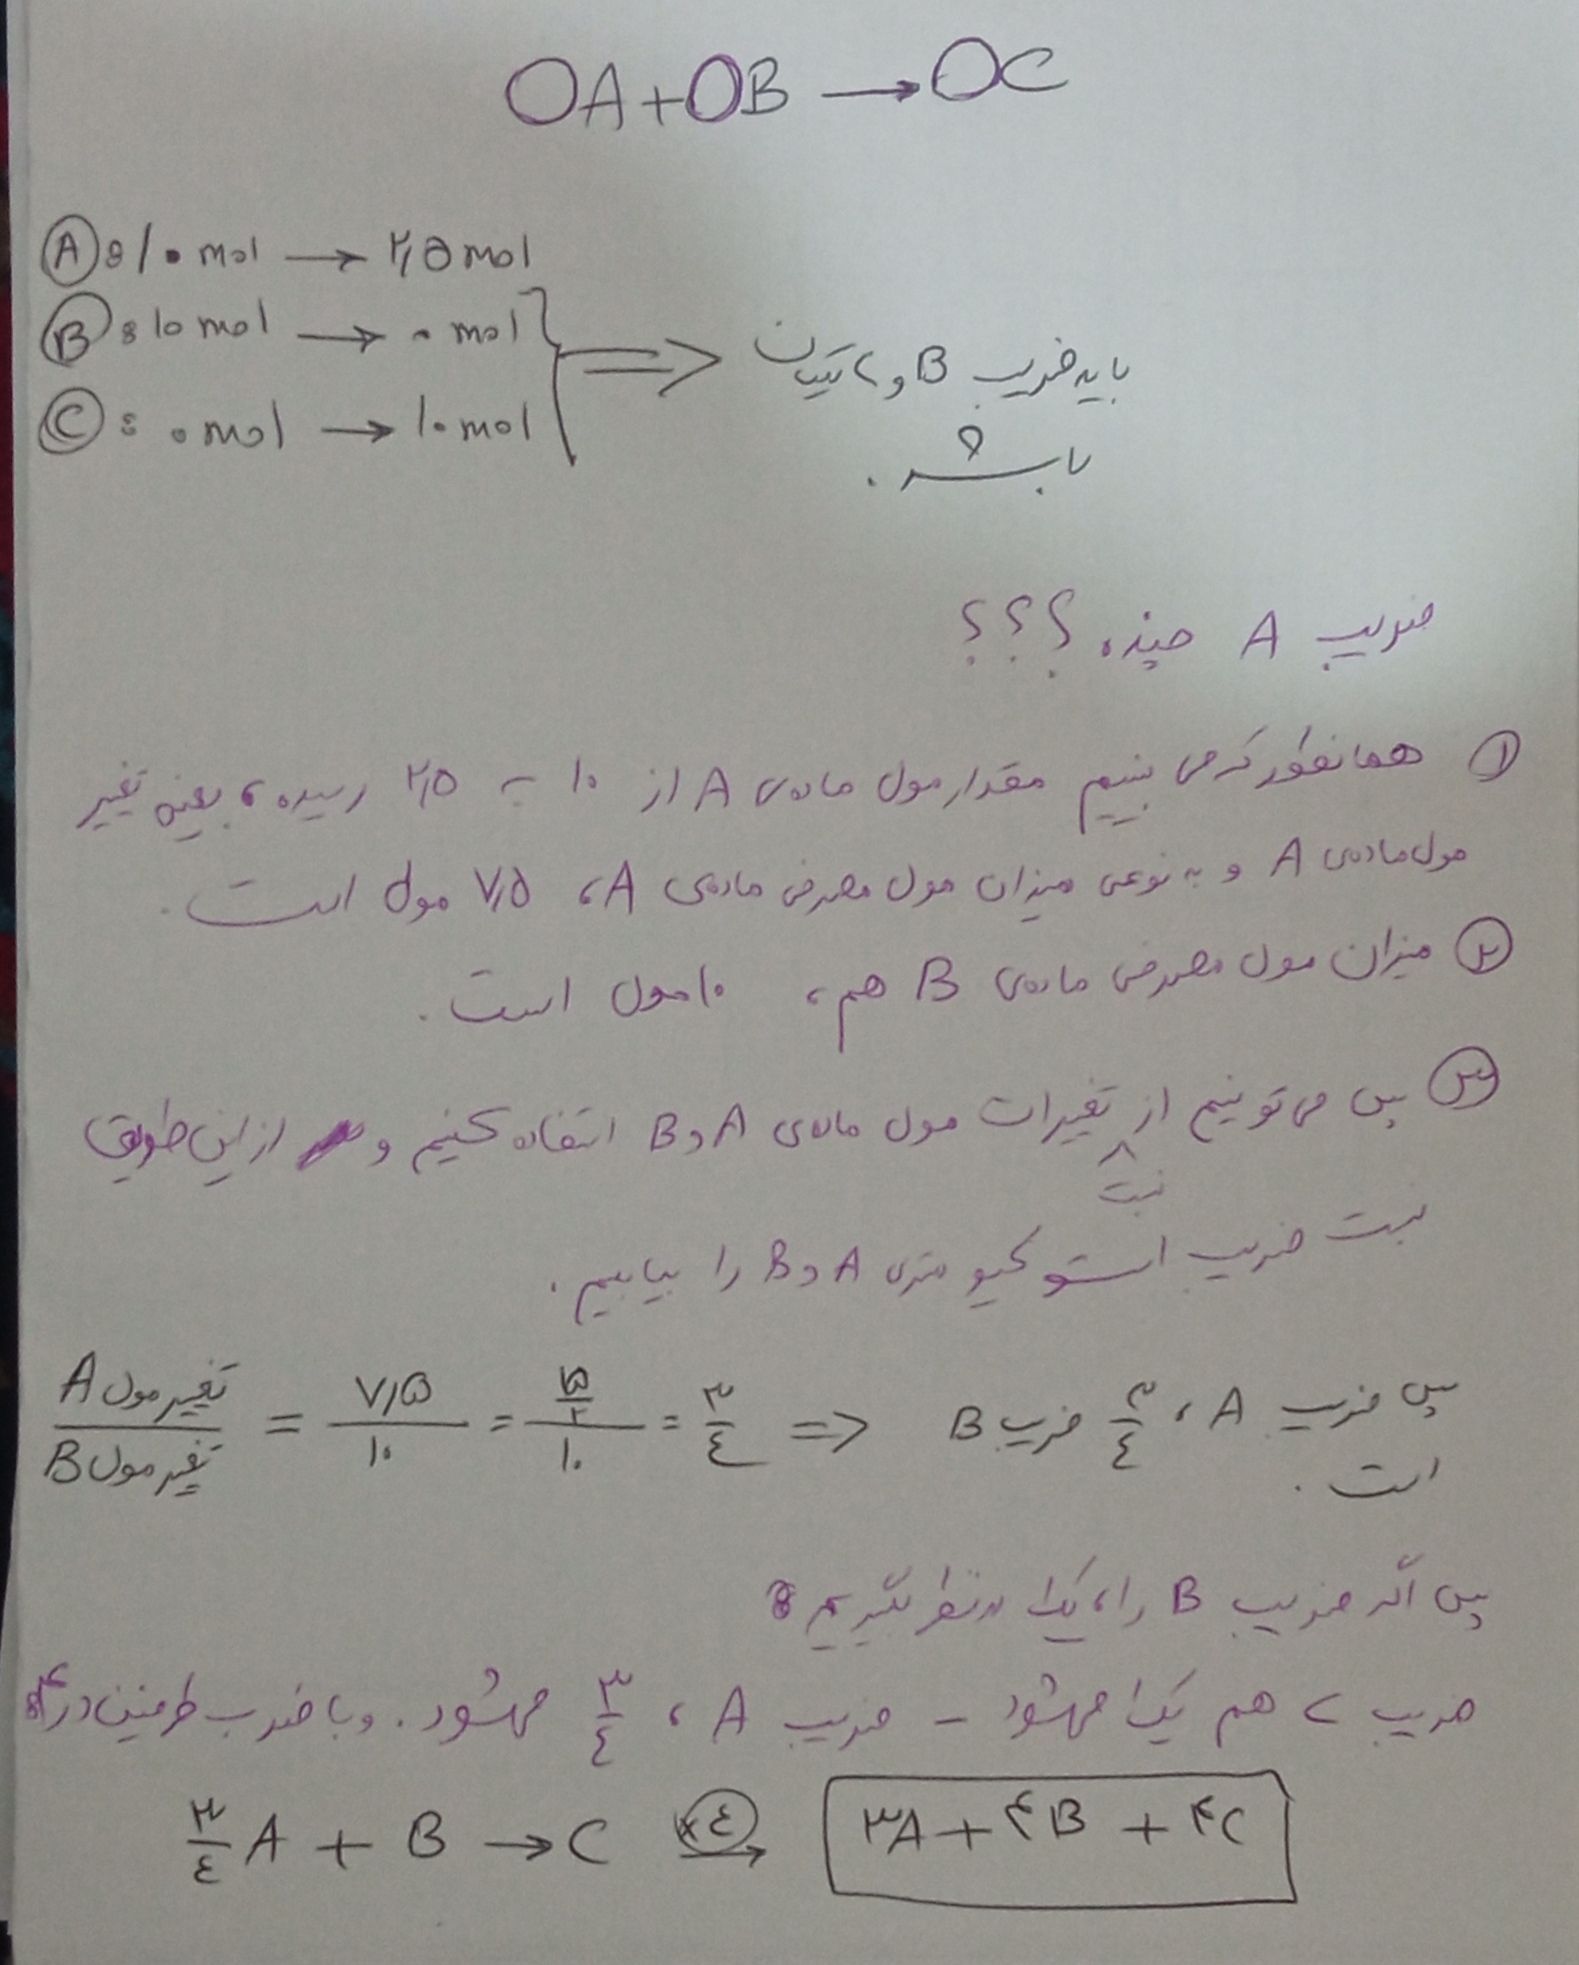 OA + OB → OC
A: ۱۰ mol → ۲,۵ mol
B: ۱۰ mol → ۰ mol
C: ۰ mol → ۱۰ mol
⇒ باید ضریب B و C یکسان
باشه.
ضریب A چنده ؟؟؟
① همانطور که می بینیم مقدار مول ماده‌ی A از ۱۰ به ۲,۵ رسیده، یعنی تغییر
مول ماده‌ی A و به نوعی میزان مول مصرفی ماده‌ی A، ۷,۵ مول است.
② میزان مول مصرفی ماده‌ی B هم، ۱۰ مول است.
③ پس می تونیم از نسبت تغییرات مول ماده‌ی A و B استفاده کنیم و از این طریق
نسبت ضریب استوکیومتری A و B را بیابیم.
تغییر مول A / تغییر مول B = ۷,۵ / ۱۰ = ۱۵/۲ / ۱۰ = ۳/٤ ⇒ پس ضریب A، ۳/٤ ضریب B
است.
پس اگر ضریب B را، یک در نظر بگیریم:
ضریب C هم یک میشود - ضریب A، ۳/٤ میشود. و با ضرب طرفین در ۴:
۳/٤ A + B → C ×٤ → ۳A + ۴B + ۴C